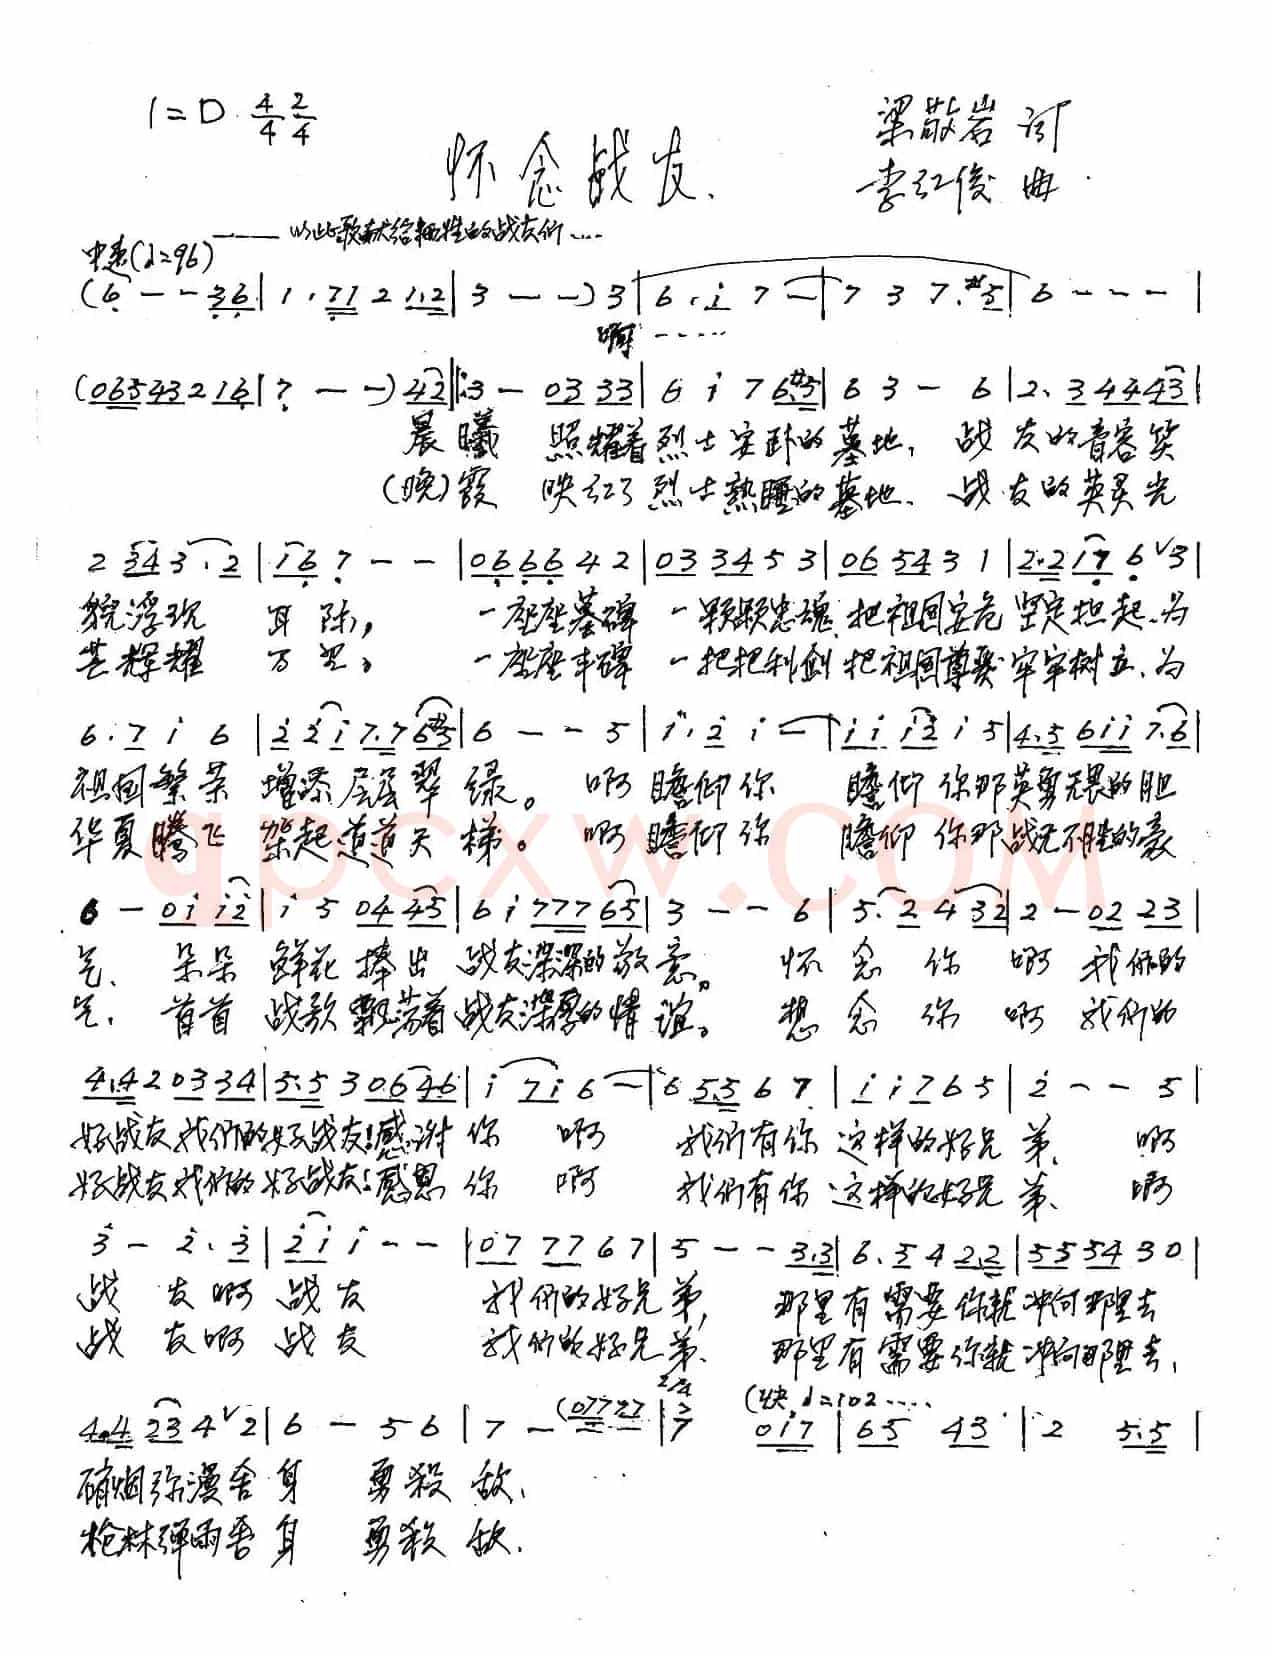 1=D 4/4 2/4
怀念战友
梁敬岩 词
李红俊 曲
中速(♩=96)
——以此歌献给牺牲的战友们……
(6 - - 3 6 | 1 . 7 1 2 1 . 2 | 3 - - ) 3 | 6 . i 7 - | 7 3 7 . #5 | 6 - - - |
啊 ……
(0 6 5 4 3 2 1 6 | 7 - - ) 4 2 |: 3 - 0 3 3 3 | 6 i 7 6 . #5 | 6 3 - 6 | 2 . 3 4 4 4 3 |
晨曦 照耀着烈士安卧的墓地, 战友的音容笑
(晚)霞 映红了烈士熟睡的墓地、 战友的英灵光
2 3 4 3 . 2 | 1 6 7 - - | 0 6 6 6 4 2 | 0 3 3 4 5 3 | 0 6 5 4 3 1 | 2 . 2 1 7 6 ∨ 3 |
貌浮现 耳际, 一座座墓碑 一颗颗忠魂 把祖国安危 坚定担起、为
芒辉耀 万里。 一座座丰碑 一把把利剑 把祖国尊严 牢牢树立、为
6 . 7 i 6 | 2 2 i 7 . 7 6 #5 | 6 - - 5 | i . 2 i - | i i i 2 i 5 | 4 . 5 6 i i 7 . 6 |
祖国繁荣 增添层层翠绿。 啊 瞻仰你 瞻仰你那英勇无畏的胆
华夏腾飞 架起道道天梯。 啊 瞻仰你 瞻仰你那战无不胜的豪
qpcxw.com
6 - 0 i i 2 | i 5 0 4 4 5 | 6 i 7 7 7 6 5 | 3 - - 6 | 5 . 2 4 3 2 | 2 - 0 2 2 3 |
气、 朵朵 鲜花 捧出 战友深深的敬意。 怀念你 啊 我们的
气、 首首 战歌飘荡着 战友深厚的情谊。 想念你 啊 我们的
4 . 4 2 0 3 3 4 | 5 . 5 3 0 6 4 6 | i 7 i 6 - | 6 5 . 5 6 7 | i i 7 6 5 | 2 - - 5 |
好战友我们的好战友!感谢你 啊 我们有你 这样的好兄弟、 啊
好战友我们的好战友!感恩你 啊 我们有你 这样的好兄弟、 啊
3 - 2 . 3 | 2 i i - - | 0 7 7 7 6 7 | 5 - - 3 . 3 | 6 . 5 4 2 . 2 | 5 5 5 4 3 0 |
战友啊 战友 我们的好兄弟, 那里有需要你就冲向那里去
战友啊 战友 我们的好兄弟、 那里有需要你就冲向那里去,
2/4 (快♩=102 ……
4 . 4 2 3 4 ∨ 2 | 6 - 5 6 | 7 - (0 7 7 7 7 | 7 0 i 7 | 6 5 4 3 | 2 5 . 5 |
硝烟弥漫舍身 勇殺敌、
枪林弹雨舍身 勇殺敌、